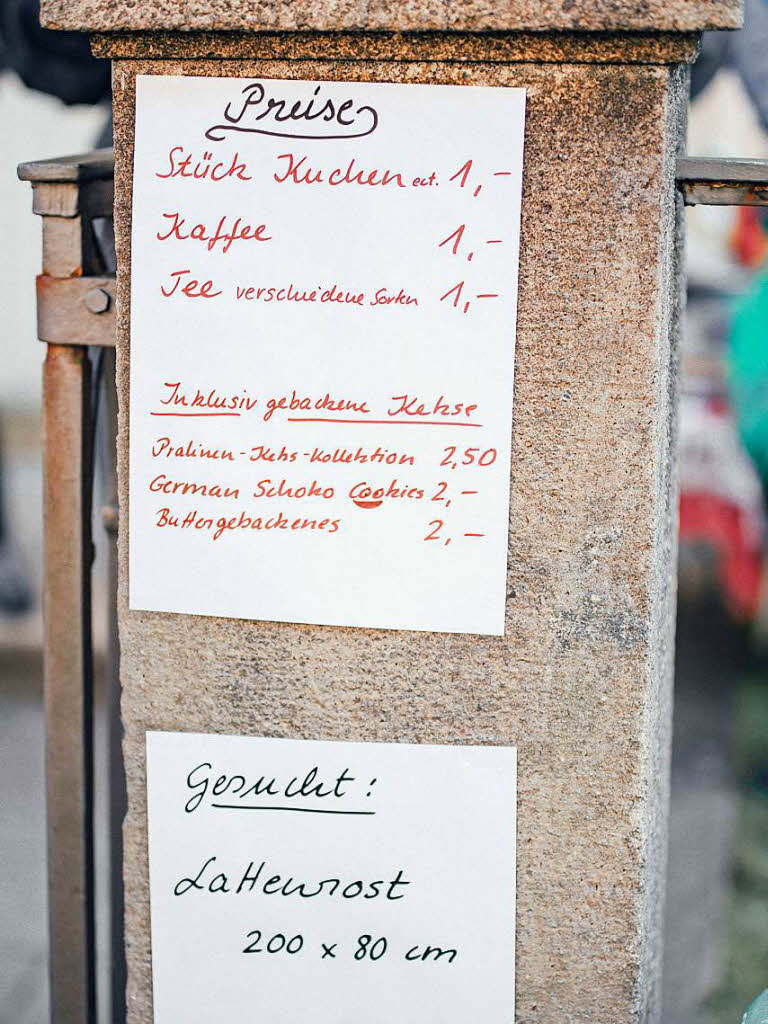 Preise
Stück Kuchen ect. 1,-
Kaffee 1,-
Tee verschiedene Sorten 1,-
Inklusiv gebackene Kekse
Pralinen-Keks-Kollektion 2,50
German Schoko Cookies 2,-
Buttergebackenes 2,-
Gesucht:
Lattenrost
200 x 80 cm